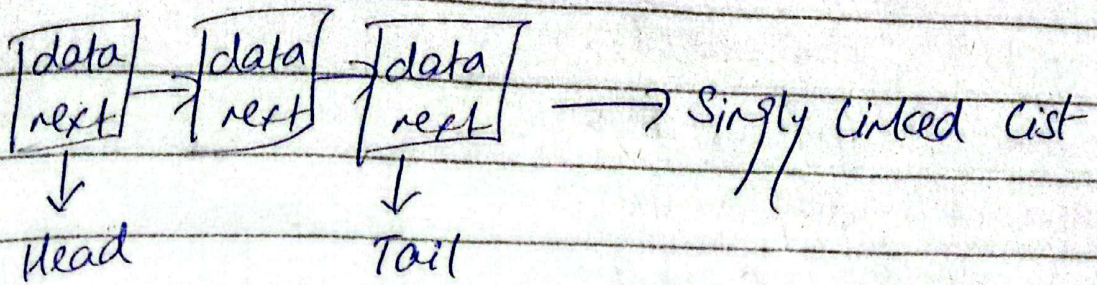 data data data
next next next → Singly Linked List
Head Tail